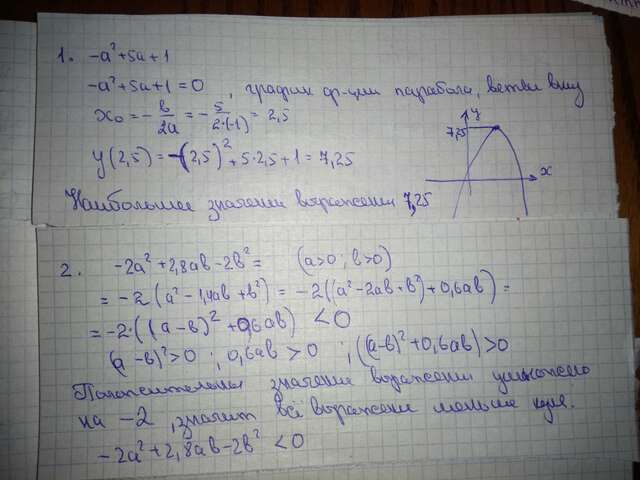 1. -a²+5a+1
-a²+5a+1=0, график ф-ции парабола, ветви вниз
x₀ = -b/2a = -5/2·(-1) = 2,5
y(2,5) = -(2,5)² + 5·2,5+1 = 7,25
Наибольшее значение выражения 7,25
7,25
y
x
2. -2a²+2,8ab-2b² = (a>0; b>0)
= -2(a²-1,4ab+b²) = -2((a²-2ab+b²)+0,6ab) =
= -2·((a-b)²+0,6ab) < 0
(a-b)²>0; 0,6ab>0; ((a-b)²+0,6ab)>0
Положительное значение выражения умножено
на -2, значит всё выражение меньше нуля.
-2a²+2,8ab-2b² < 0